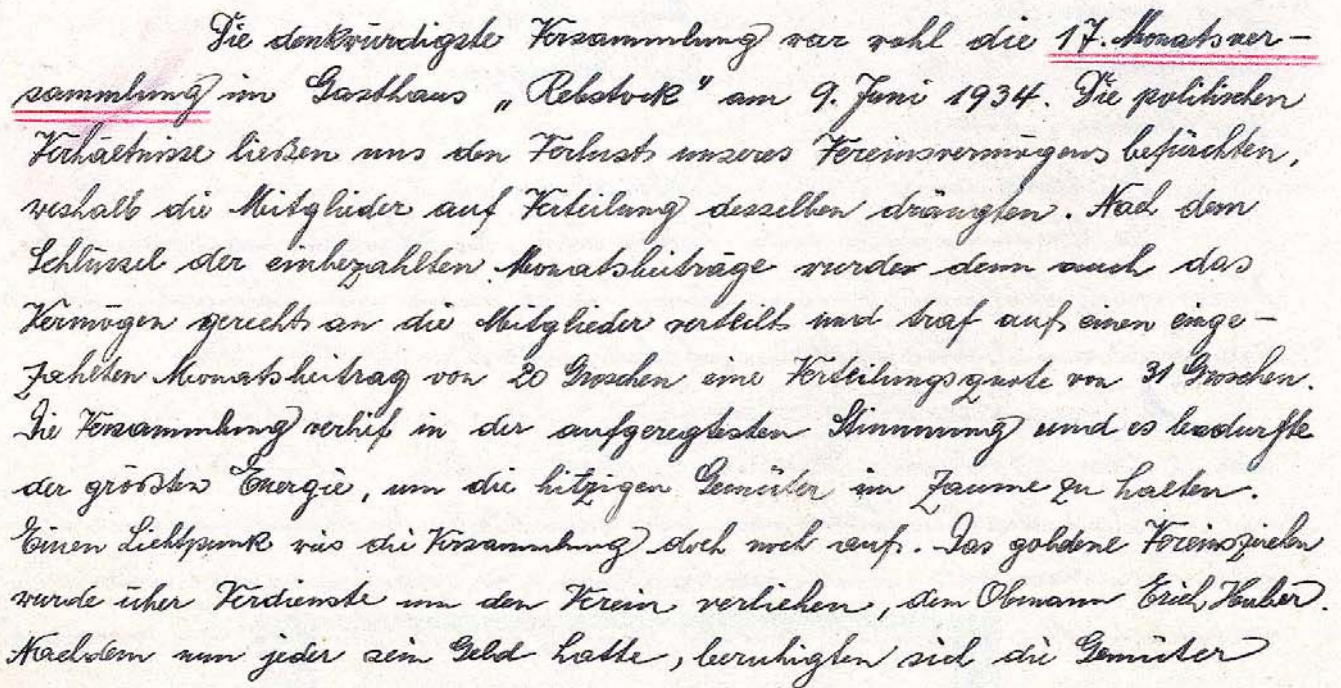 Die denkwürdigste Versammlung war wohl die 17. Monatsver-
sammlung im Gasthaus „Rebstock" am 9. Juni 1934. Die politischen
Verhältnisse ließen uns den Verlust unseres Vereinsvermögens befürchten,
weshalb die Mitglieder auf Verteilung desselben drängten. Nach dem
Schlüssel der einbezahlten Monatsbeiträge wurde denn auch das
Vermögen gerecht an die Mitglieder verteilt und traf auf einen einge-
zahlten Monatsbeitrag von 20 Groschen eine Verteilungsquote von 31 Groschen.
Die Versammlung verlief in der aufgeregtesten Stimmung und es bedurfte
der größten Energie, um die hitzigen Gemüter im Zaume zu halten.
Einen Lichtpunk wies die Versammlung doch noch auf. Das goldene Vereinszeichen
wurde über Verdienste um den Verein verliehen, dem Obmann Erich Huber.
Nachdem nun jeder sein Geld hatte, beruhigten sich die Gemüter